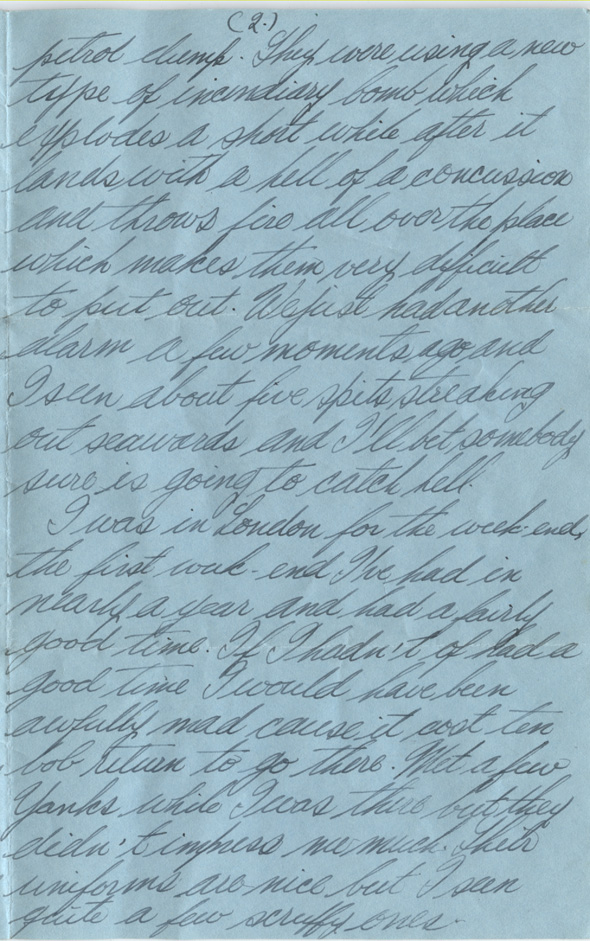 (2.)
petrol dump. They were using a new
type of incendiary bomb which
explodes a short while after it
lands with a hell of a concussion
and throws fire all over the place
which makes them very difficult
to put out. We just had another
alarm a few moments ago and
I seen about five spits streaking
out seawards and I'll bet somebody
sure is going to catch hell.
I was in London for the week-end,
the first week-end I've had in
nearly a year and had a fairly
good time. If I hadn't of had a
good time I would have been
awfully mad cause it cost ten
bob return to go there. Met a few
Yanks while I was there but they
didn't impress me much. Their
uniforms are nice but I seen
quite a few scruffy ones.